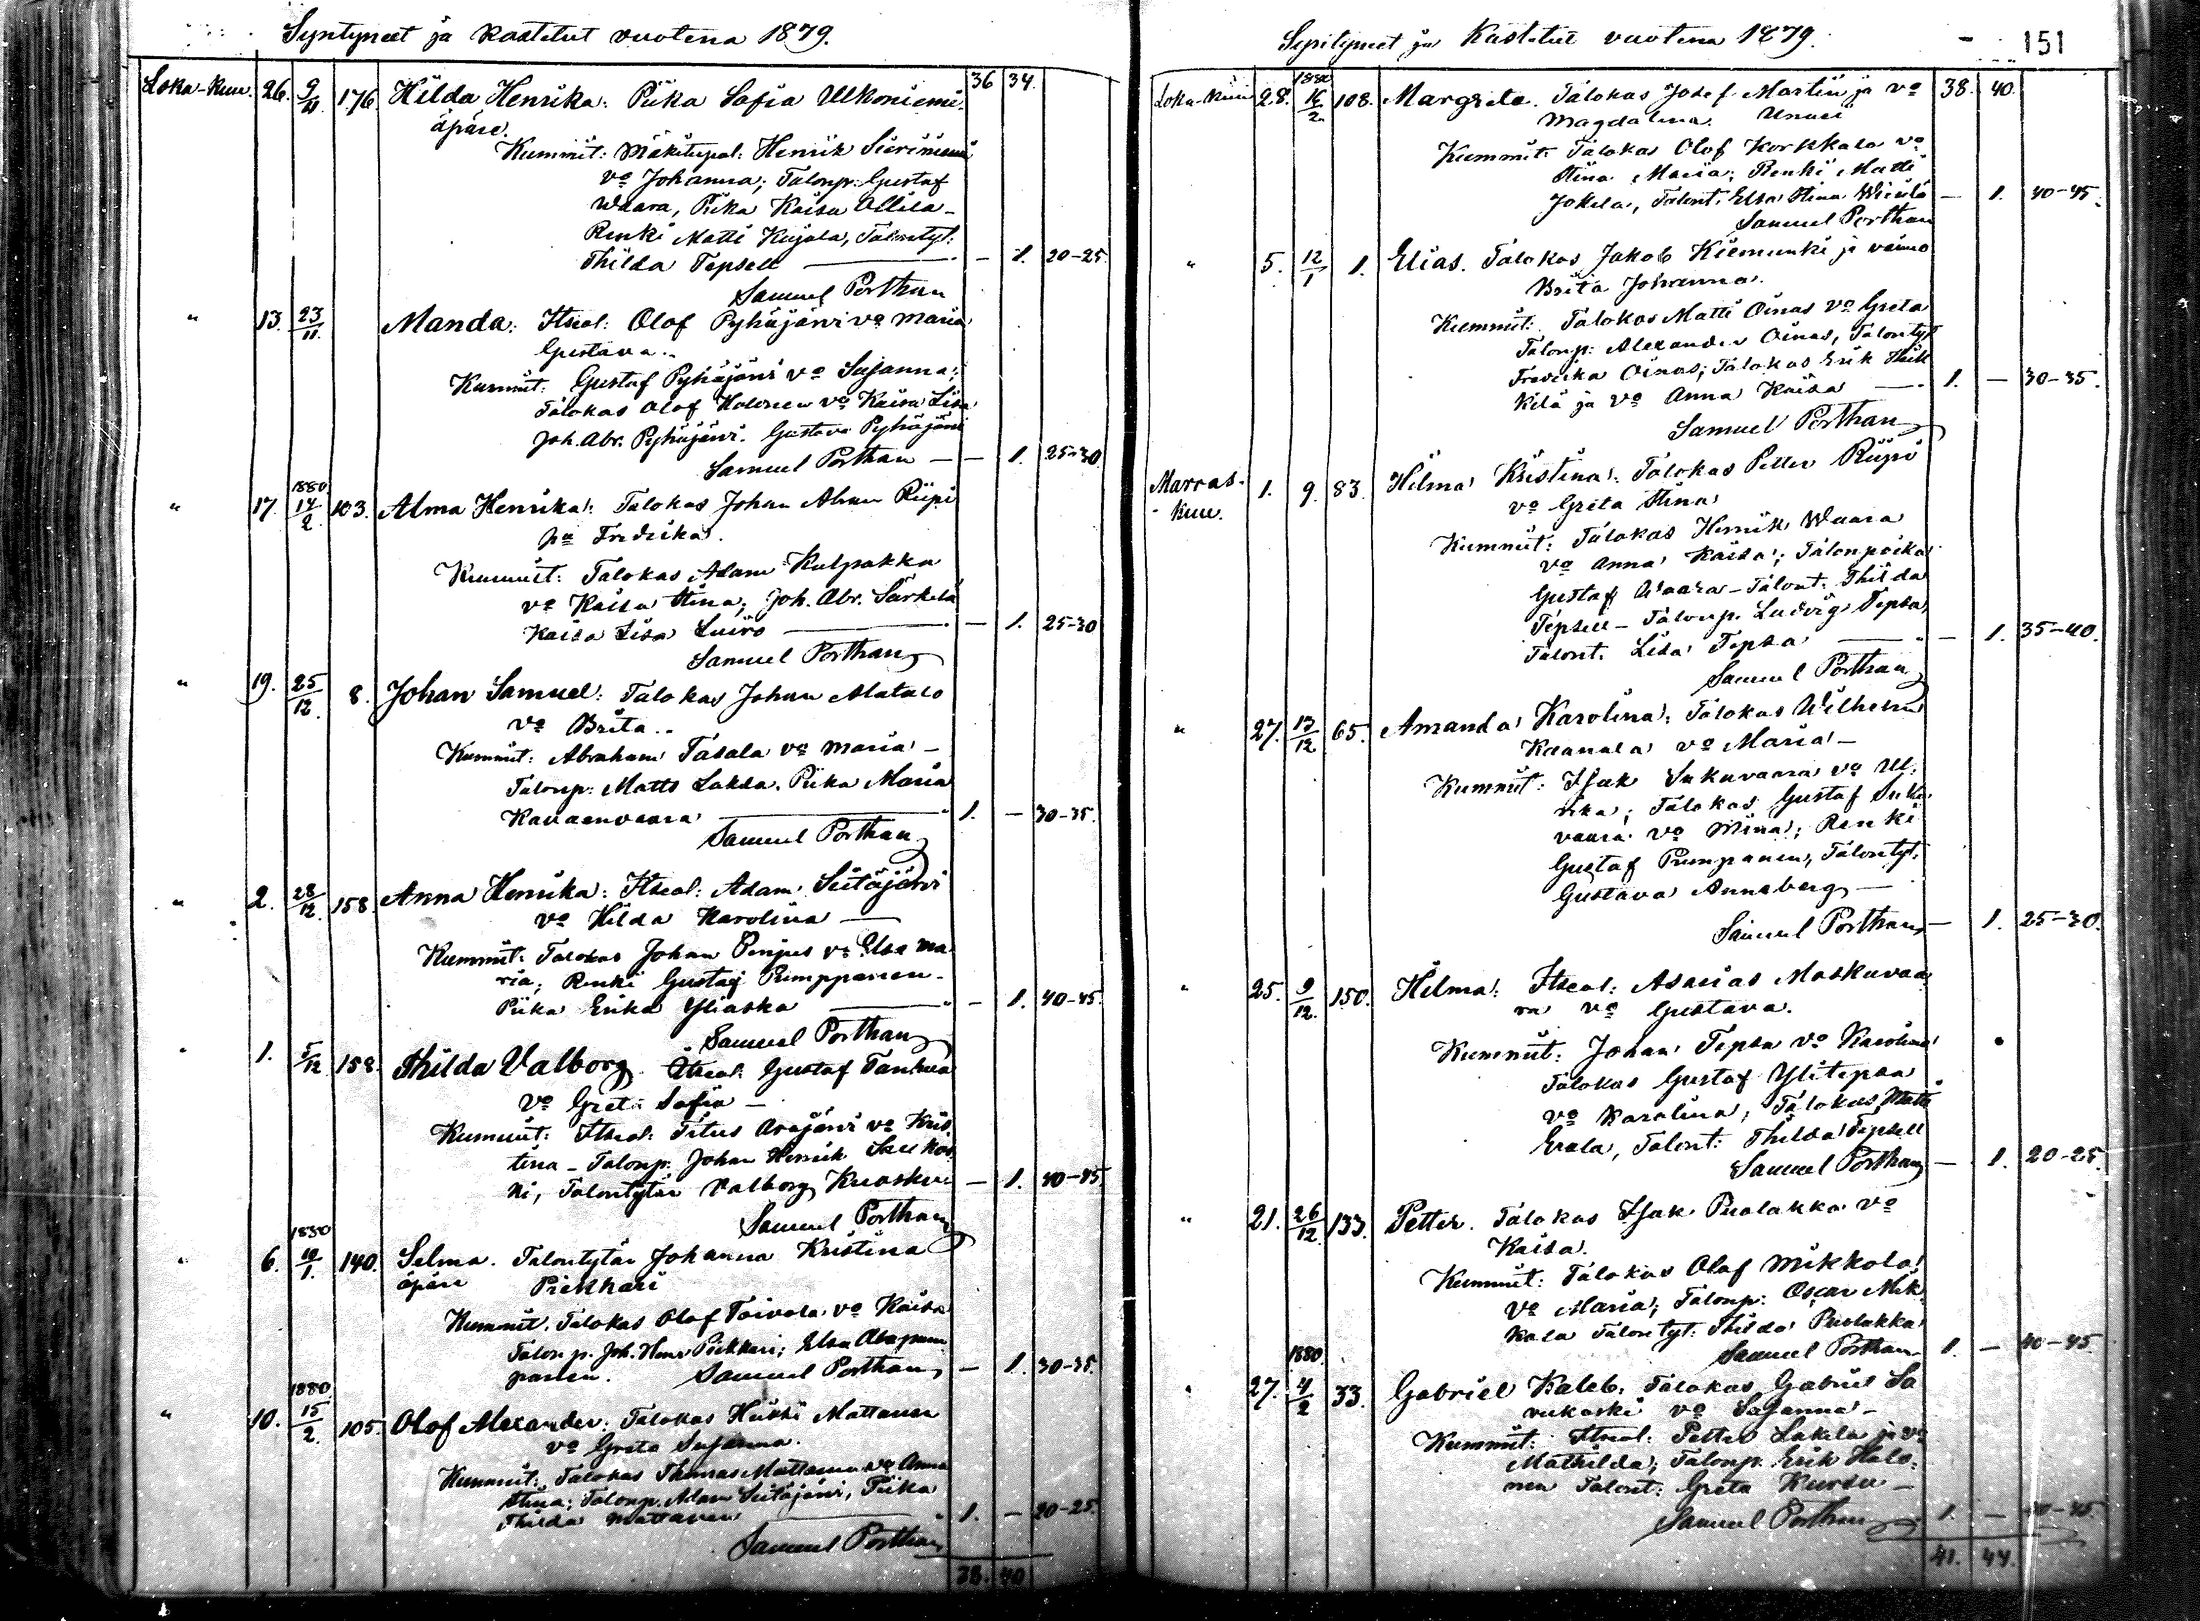 Syntyneet ja kastetut vuotena 1879.
36 34.
Loka-kuu. 26. 9/11 176 Hilda Henrika: Piika Sofia Ulkoniemi
äpäre.
Kummit: Mäkitupal: Henrik Sieriniemi
vo Johanna; Talonp: Gustaf
Waara, Piika Kaisa Ollila-
Renki Matti Kujala, Talontyt:
Thilda Tepsell — 1. 20-25.
Samuel Porthan
" 13. 23/11. Manda: Itseal: Olof Pyhäjärvi vo Maria
Gustava..
Kummit: Gustaf Pyhäjärvi vo Susanna;
Talokas Olof Halonen vo Kaisa Lisa
Joh. Abr. Pyhäjärvi. Gustava Pyhäjärvi
Samuel Porthan — — 1. 25-30
1880
" 17. 14/2. 103. Alma Henrika: Talokas Johan Abram Riipi
ja Fredrika.
Kummit: Talokas Adam Kulpakka
vo Kaisa Stina; Joh. Abr. Särkelä
Kaisa Lisa Luiro — — 1. 25-30
Samuel Porthan
" 19. 25/12. 8. Johan Samuel: Talokas Johan Alatalo
vo Brita..
Kummit: Abraham Tasala vo Maria -
Talonp: Matts Lakela. Piika Maria
Kavaenvaara — 1. — 30-35.
Samuel Porthan
" 2. 28/12. 158. Anna Henrika: Itseal: Adam Seitajärvi
vo Hilda Karolina —
Kummit: Talokas Johan Ponjus vo Elsa Ma
ria; Renki Gustaf Pumppanen-
Piika Erika Yliaska — — 1. 40-45.
Samuel Porthan
" 1. 5/12 158. Thilda Valborg. Itseal: Gustaf Tanhua
vo Greta Sofia —
Kummit: Itseal: Titus Arajärvi vo Kris
tina - Talonp: Johan Henrik Saukos
ki, Talontytär Valborg Kuoskue — 1. 40-45
Samuel Porthan
1880
" 6. 10/1. 140. Selma. Talontytär Johanna Kristina
äpäre Piekkari
Kummit: Talokas Olof Toivola vo Kaisa
Talonp. Joh. Henr Piekkari; Elsa
panen. Samuel Porthan — 1. 30-35.
1880
" 10. 15/2. 105. Olof Alexander: Talokas Heikki Mattanen
vo Greta Susanna.
Kummit: Talokas Thomas Mattanen vo Anna
Stina; Talonp. Adam Seitajärvi, Piika
Thilda Mattanen — 1. — 20-25.
Samuel Porthan
38. 40
Syntyneet ja Kastetut vuotena 1879. - 151
1880 38. 40.
Loka-kuu 28. 16/2 108. Margreta. Talokas Josef Martin ja vo
Magdalena Unari
Kummit: Talokas Olof Korkkala vo
Stina Maria; Renki Matti
Jokela, Talont: Elsa Stina Wiulo — 1. 40-45.
Samuel Porthan
" 5. 12/1 1. Elias. Talokas Jakob Kiemunki ja vaimo
Brita Johanna.
Kummit: Talokas Matti Oinas vo Greta
Talonp: Alexander Oinas, Talontyt
Fredrika Oinas; Talokas Erik Heik
kilä ja vo Anna Kaisa — 1. — 30-35.
Samuel Porthan
Marras- 1. 9. 83. Hilma Kristina: Talokas Petter Riipi
-kuu. vo Greta Stina
Kummit: Talokas Henrik Waara
vo Anna Kaisa; Talonpoika
Gustaf Waara - Talont: Thilda
Tepsell - Talonp. Ludvig Tepsa
Talont. Lisa Tepsa — — 1. 35-40.
Samuel Porthan
" 27. 13/12 65. Amanda Karolina: Talokas Wilhelm
Kaanala vo Maria -
Kummit: Isak Sukuvaara vo Ul.
rika; Talokas Gustaf Suku
vaara vo Mina; Renki
Gustaf Pumpanen, Talontyt.
Gustava Anneberg —
Samuel Porthan — 1. 25-30.
" 25. 9/12. 150. Hilma: Itseal: Asarias Moskuvaa
ra vo Gustava.
Kummit: Johan Tepsa vo Karolina
Talokas Gustaf Ylitepsa
vo Karolina; Talokas Matti
Erala, Talont: Thilda Tepsell
Samuel Porthan — 1. 20-25.
" 21. 26/12. 133. Petter. Talokas Isak Puolakka vo
Kaisa.
Kummit: Talokas Olof Mikkola
vo Maria; Talonp: Oscar Mik
kola Talontyt: Thilda Puolakka
Samuel Porthan 1. — 40-45.
1880
" 27. 4/2 33. Gabriel Kaleb: Talokas Gabriel Sa
rukoski vo Susanna -
Kummit: Itseal: Petter Lakela ja vo
Mathilda; Talonp. Erik Halo-
nen Talont: Greta Kursu —
Samuel Porthan 1. — 40-45.
41. 44.